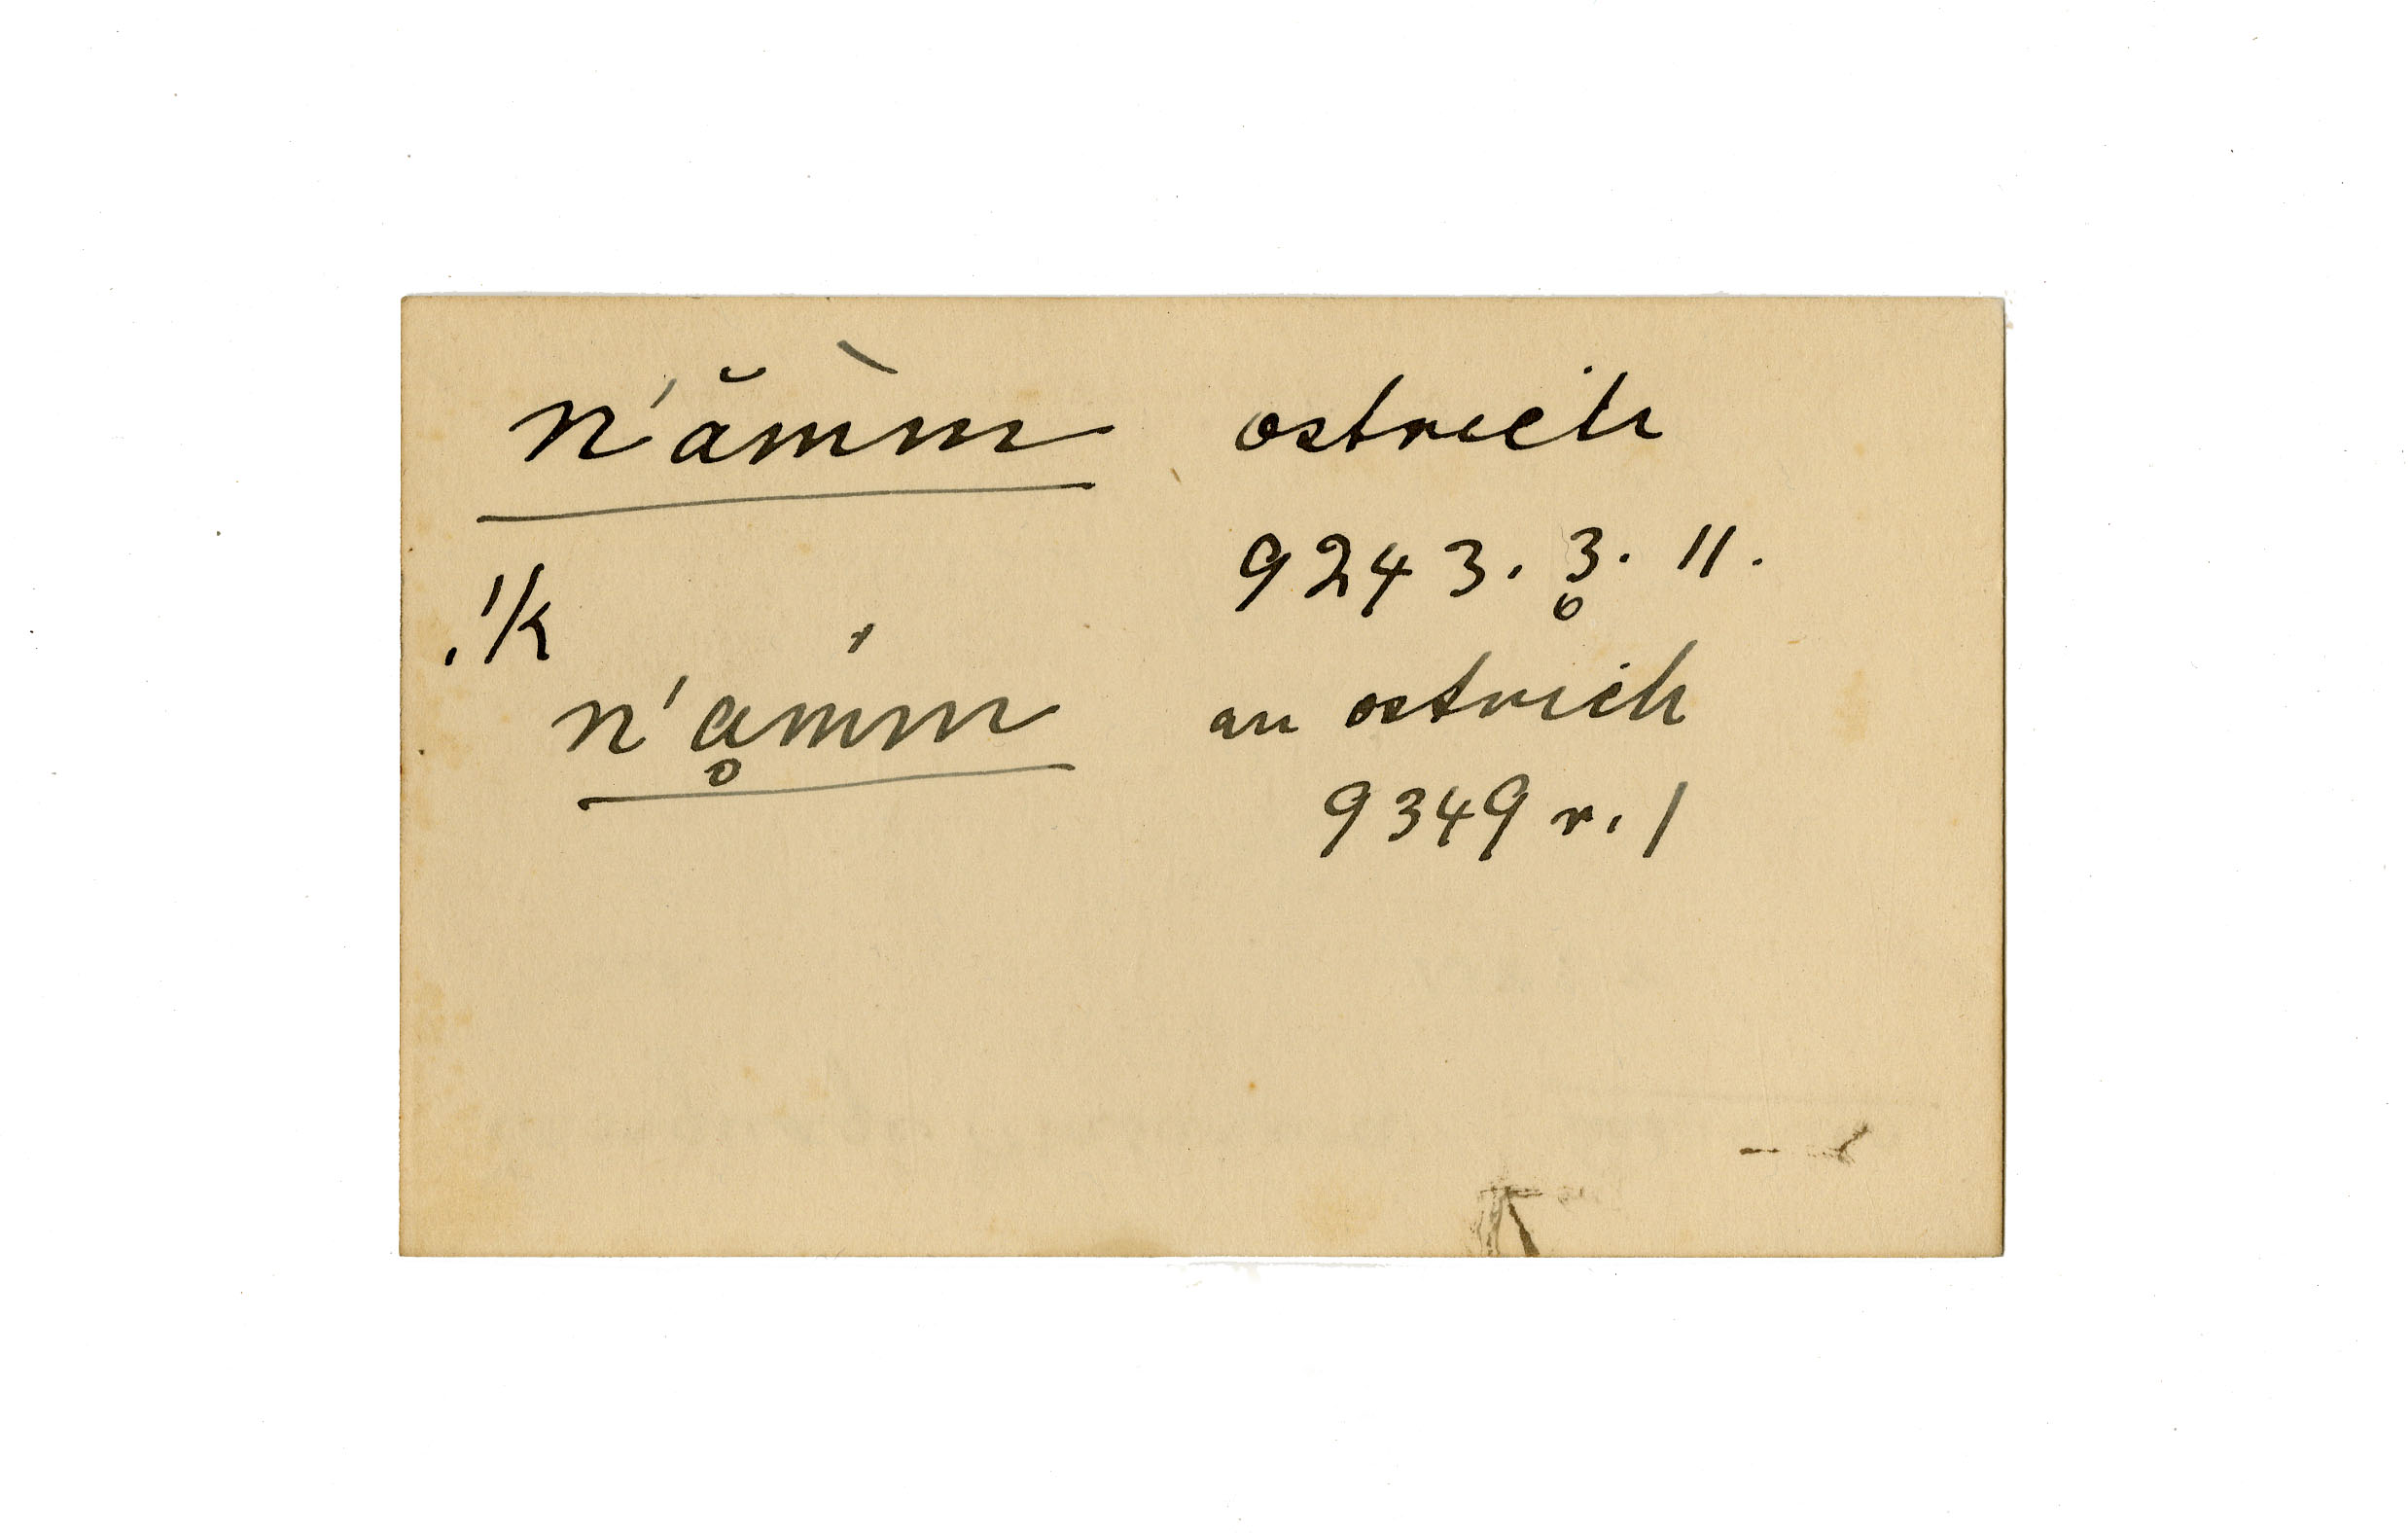 n'ămm̀ ostrich
9243. 3. 11.
!k
n'ḁmḿ an ostrich
9349 r. 1